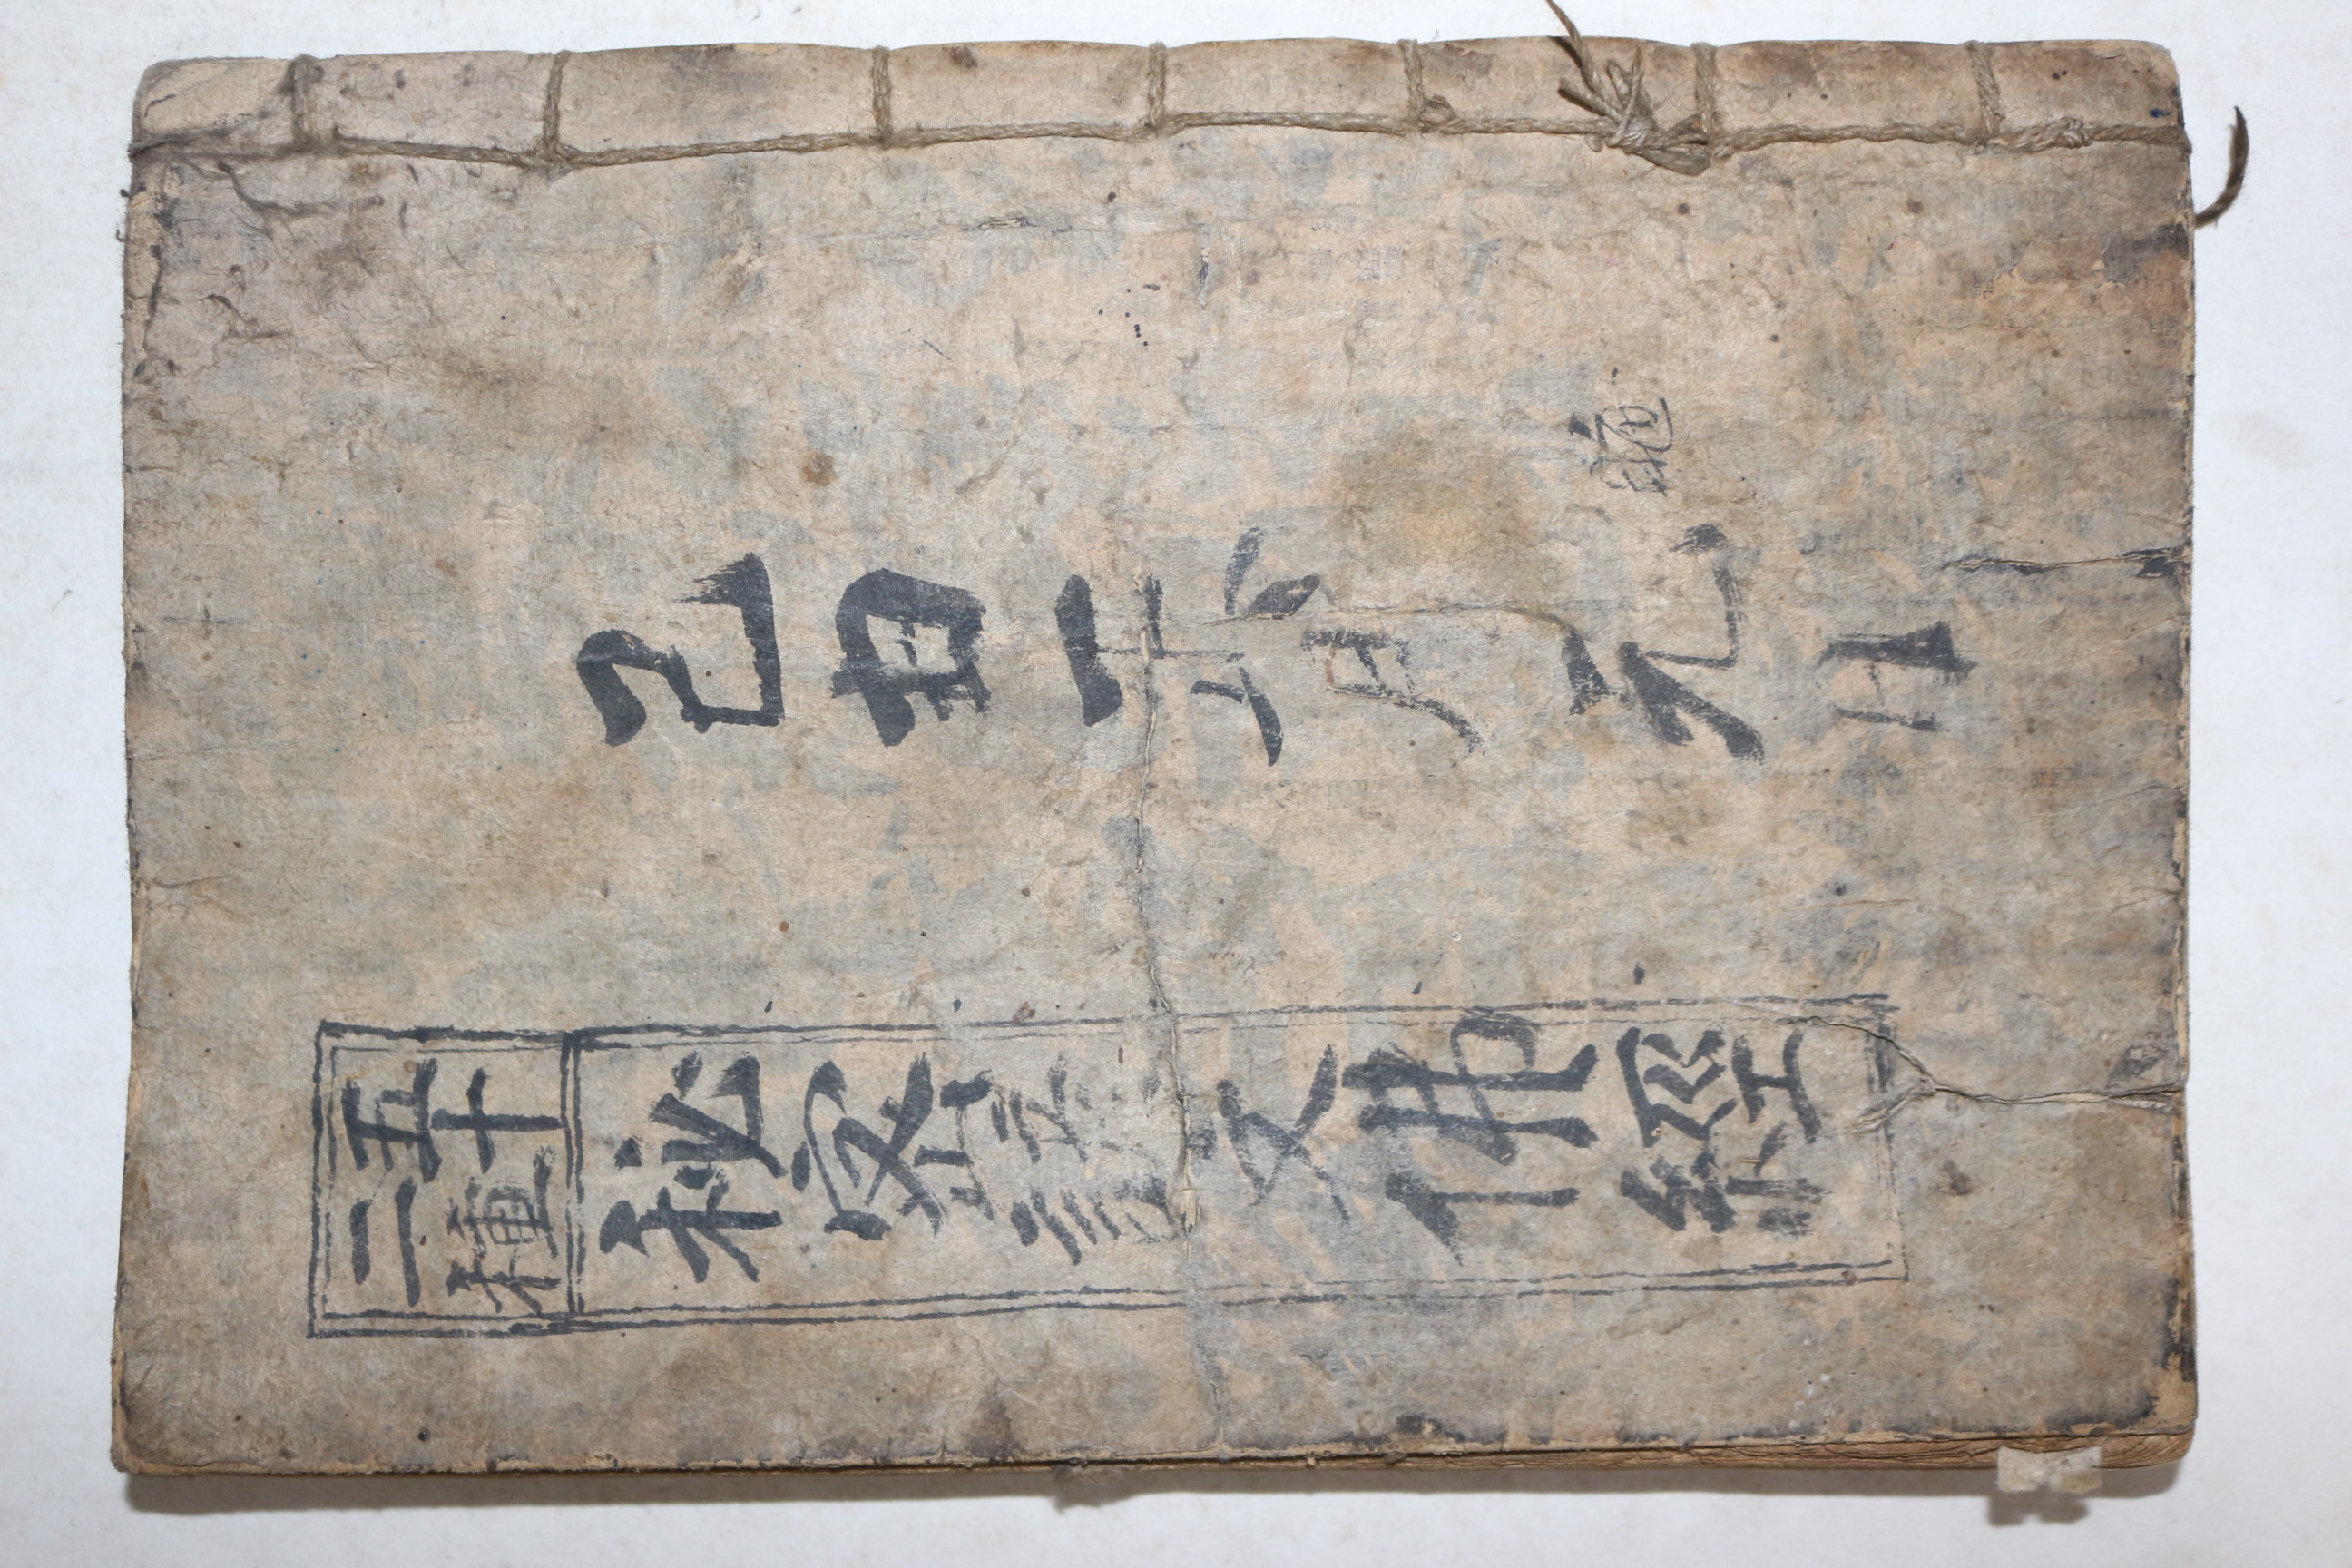 乙酉 月元日
五十
二種
秘密諺文佛經